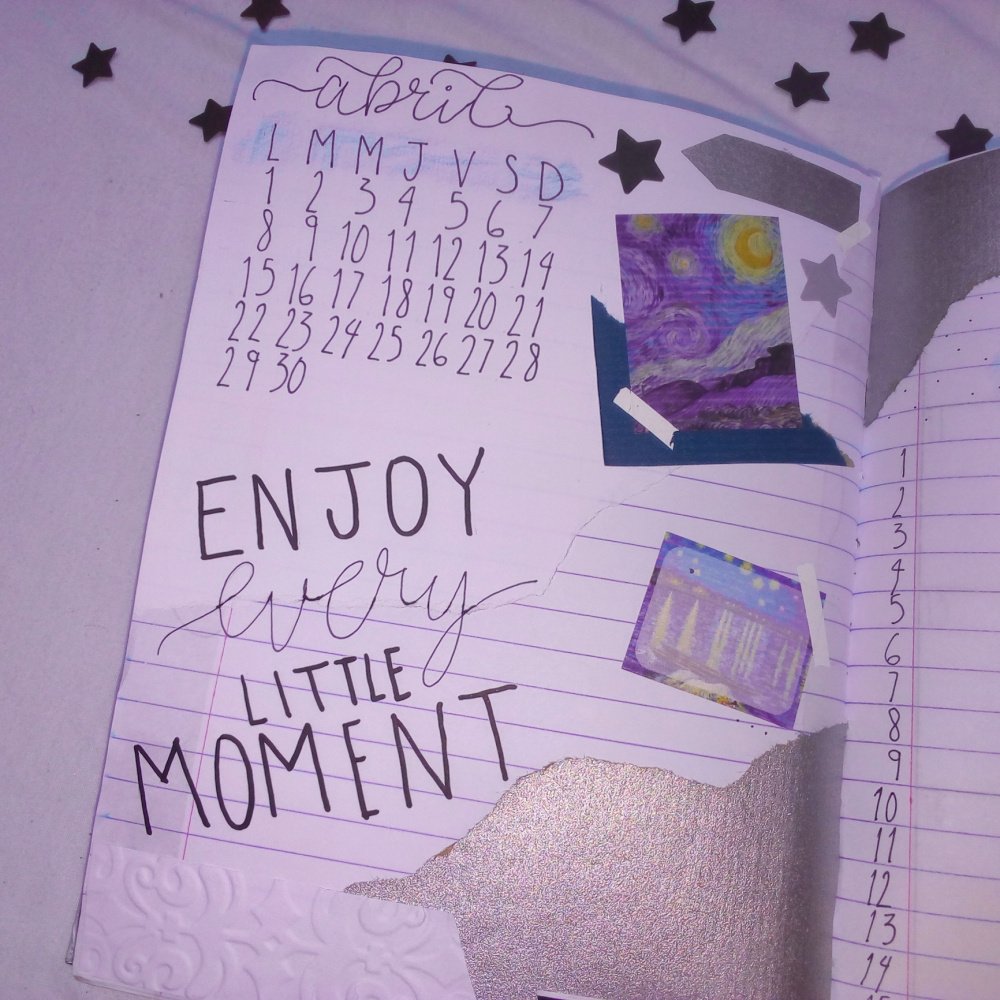 abril
L M M J V S D
1 2 3 4 5 6 7
8 9 10 11 12 13 14
15 16 17 18 19 20 21
22 23 24 25 26 27 28
29 30
ENJOY
every
LITTLE
MOMENT
1
2
3
4
5
6
7
8
9
10
11
12
13
14